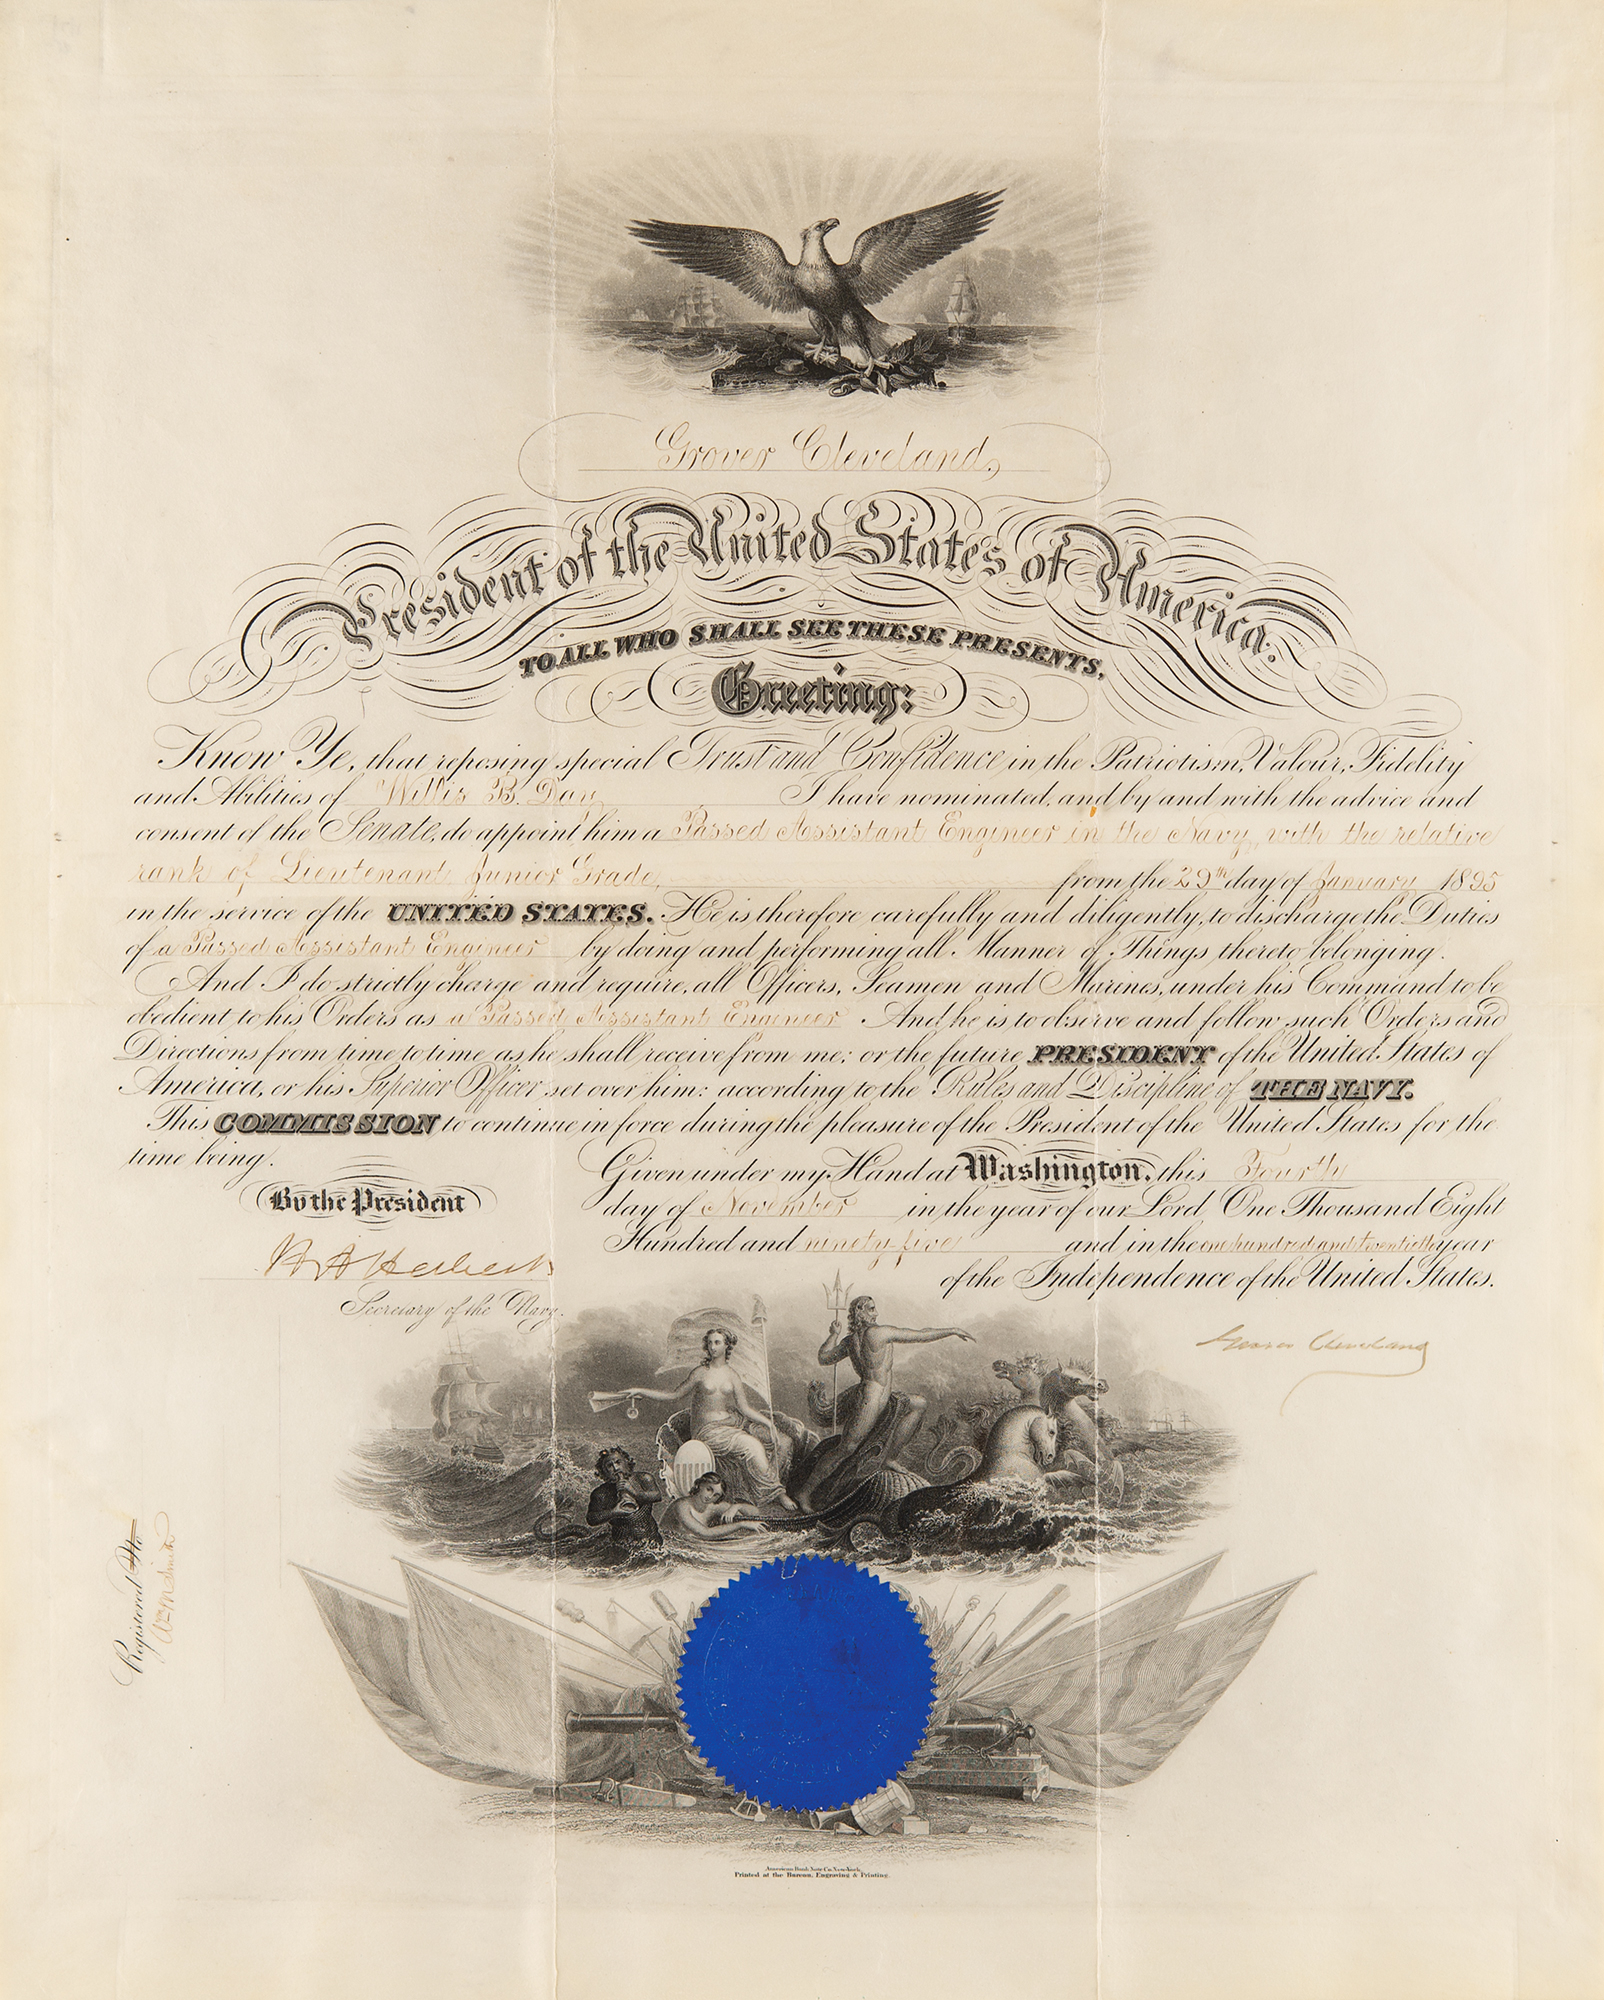 Grover Cleveland,
President of the United States of America.
TO ALL WHO SHALL SEE THESE PRESENTS,
Greeting:
Know Ye, that reposing special Trust and Confidence in the Patriotism, Valour, Fidelity
and Abilities of Willis B. Day I have nominated, and by and with the advice and
consent of the Senate, do appoint him a Passed Assistant Engineer in the Navy, with the relative
rank of Lieutenant Junior Grade, from the 29th day of January 1895
in the service of the UNITED STATES. He is therefore carefully and diligently, to discharge the Duties
of a Passed Assistant Engineer by doing and performing all Manner of Things thereto belonging.
And I do strictly charge and require, all Officers, Seamen and Marines, under his Command to be
obedient to his Orders as a Passed Assistant Engineer And he is to observe and follow such Orders and
Directions from time to time as he shall receive from me; or the future PRESIDENT of the United States of
America, or his Superior Officer set over him: according to the Rules and Discipline of THE NAVY.
This COMMISSION to continue in force during the pleasure of the President of the United States for the
time being.
Given under my Hand at Washington, this Fourth
day of November in the year of our Lord One Thousand Eight
Hundred and ninety-five and in the one hundred and twentieth year
of the Independence of the United States.
By the President
Grover Cleveland
H A Herbert
Secretary of the Navy.
Registered No
American Bank Note Co. New York.
Printed at the Bureau, Engraving & Printing.